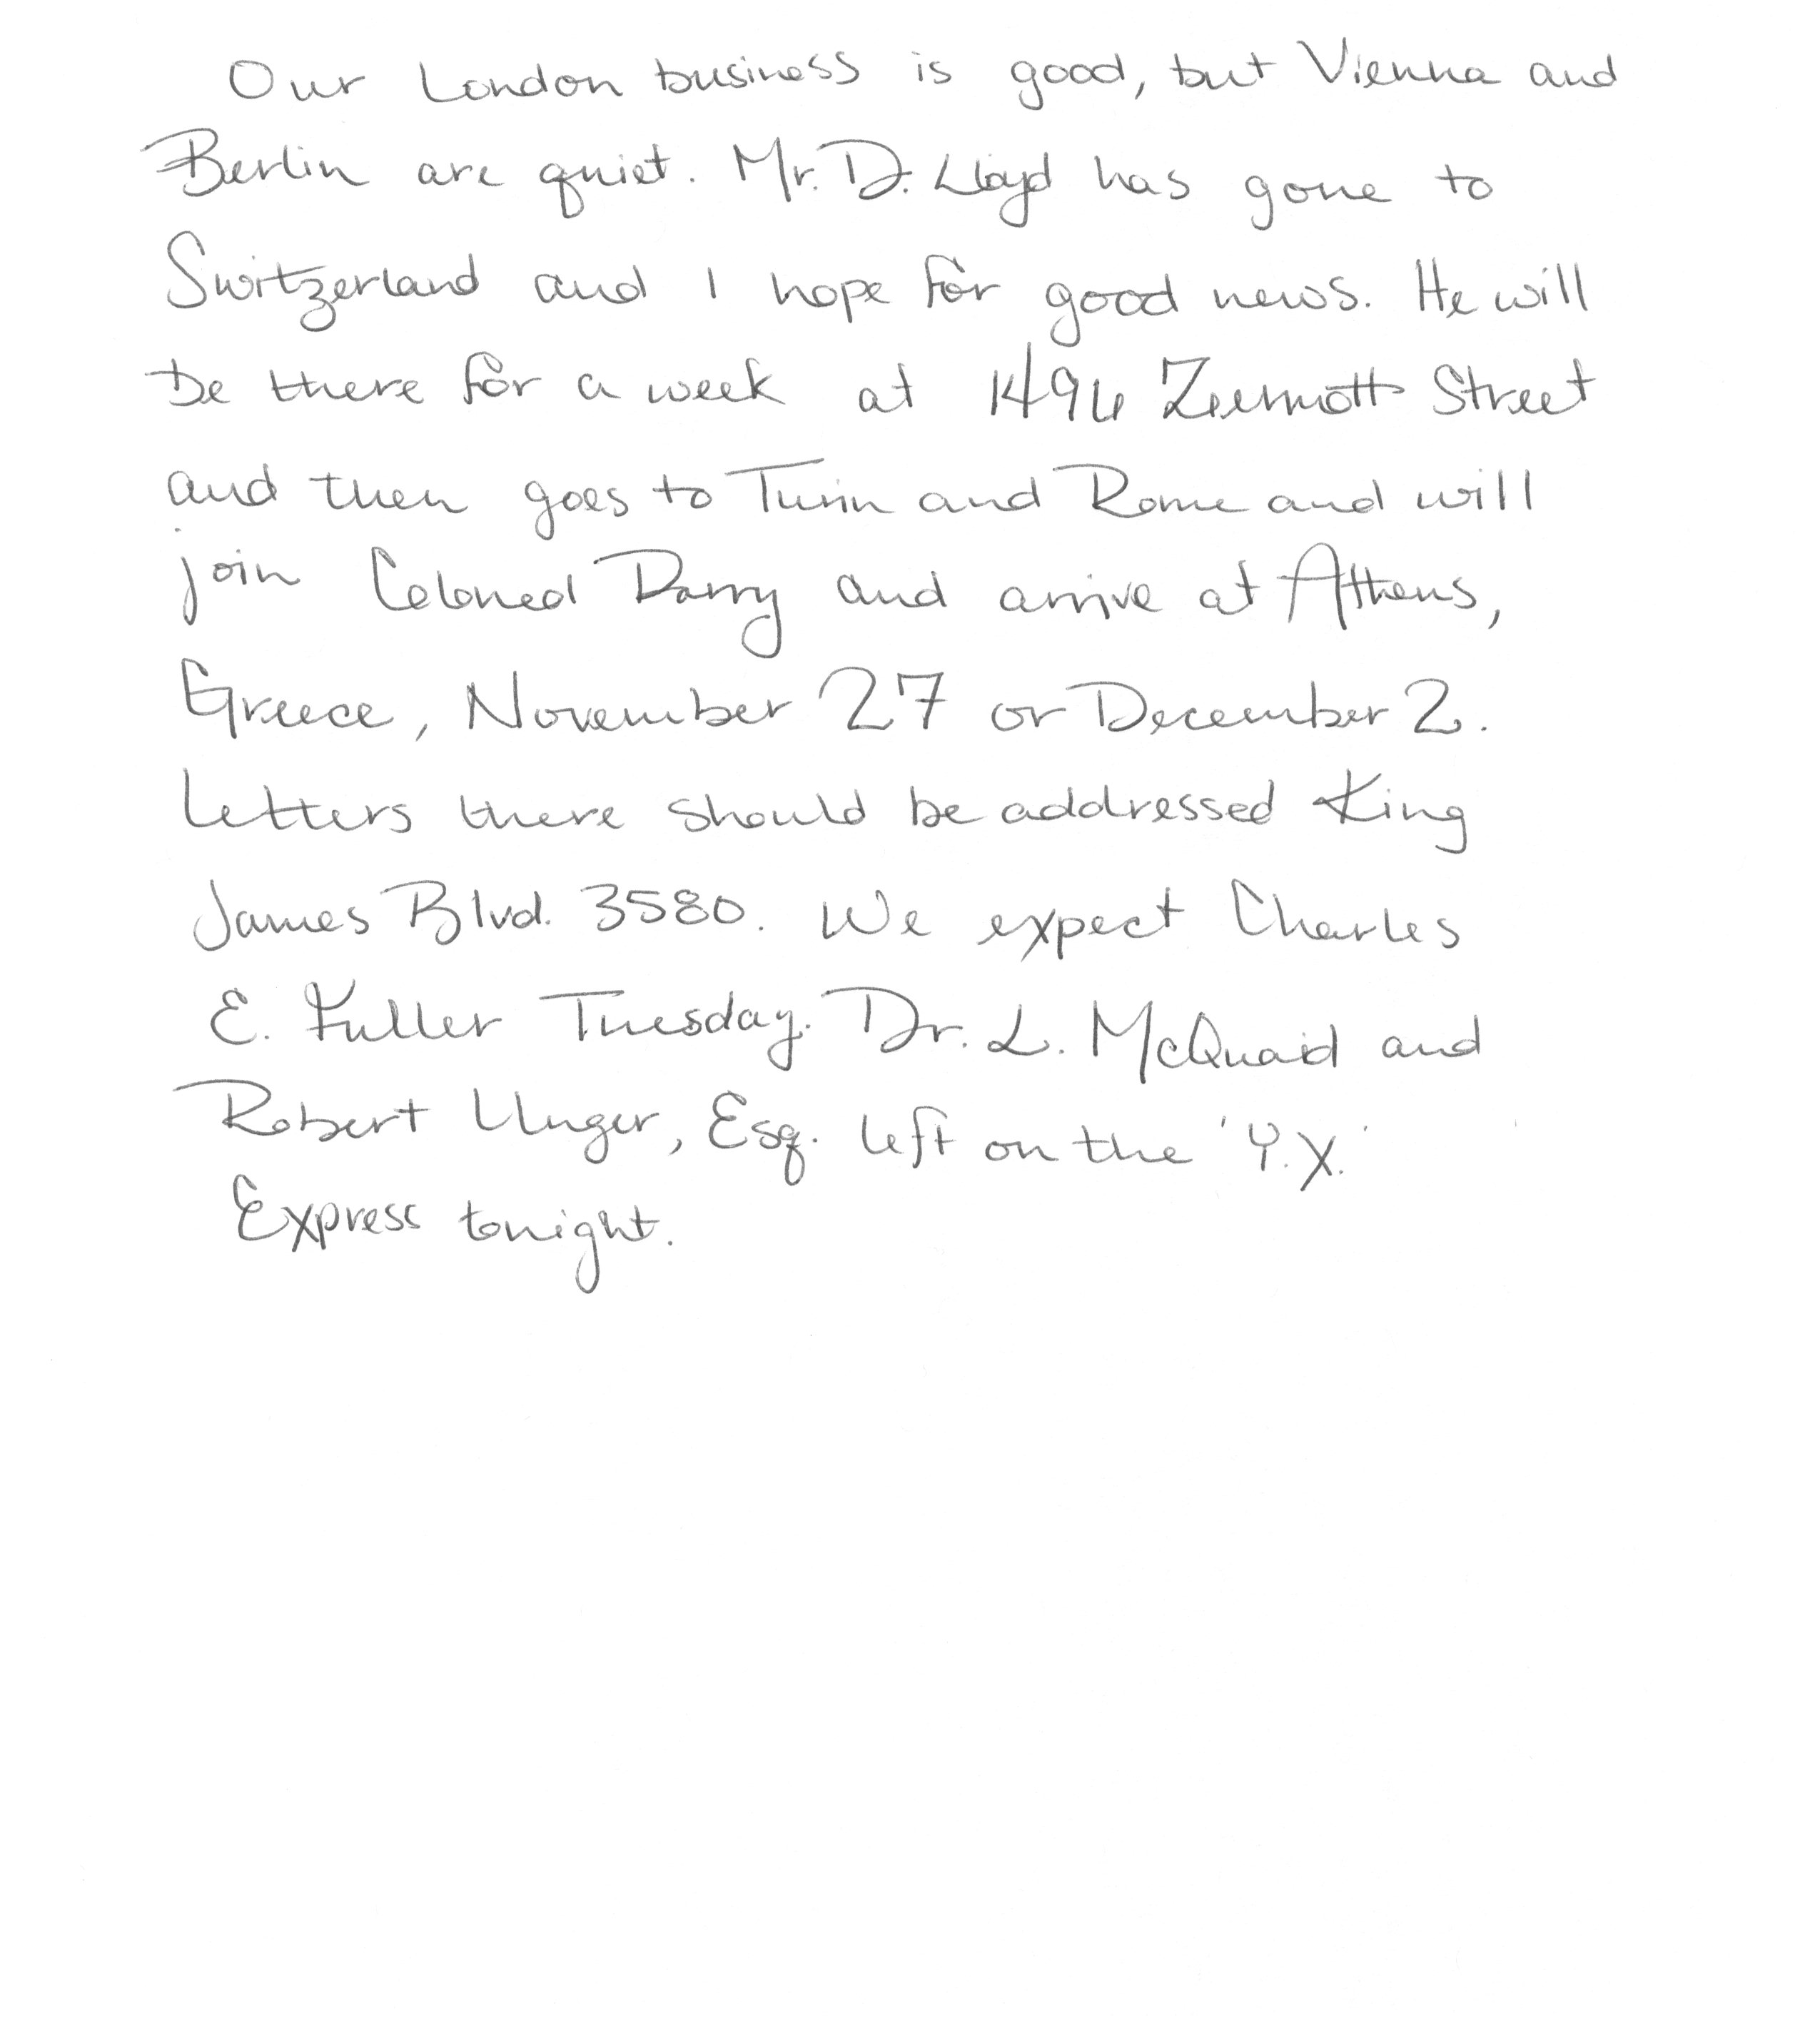 Our London business is good, but Vienna and
Berlin are quiet. Mr. D. Lloyd has gone to
Switzerland and I hope for good news. He will
be there for a week at 1496 Zermott Street
and then goes to Turin and Rome and will
join Colonel Parry and arrive at Athens,
Greece, November 27 or December 2.
Letters there should be addressed King
James Blvd. 3580. We expect Charles
E. Fuller Tuesday. Dr. L. McQuaid and
Robert Unger, Esq. left on the 'Y.X.'
Express tonight.